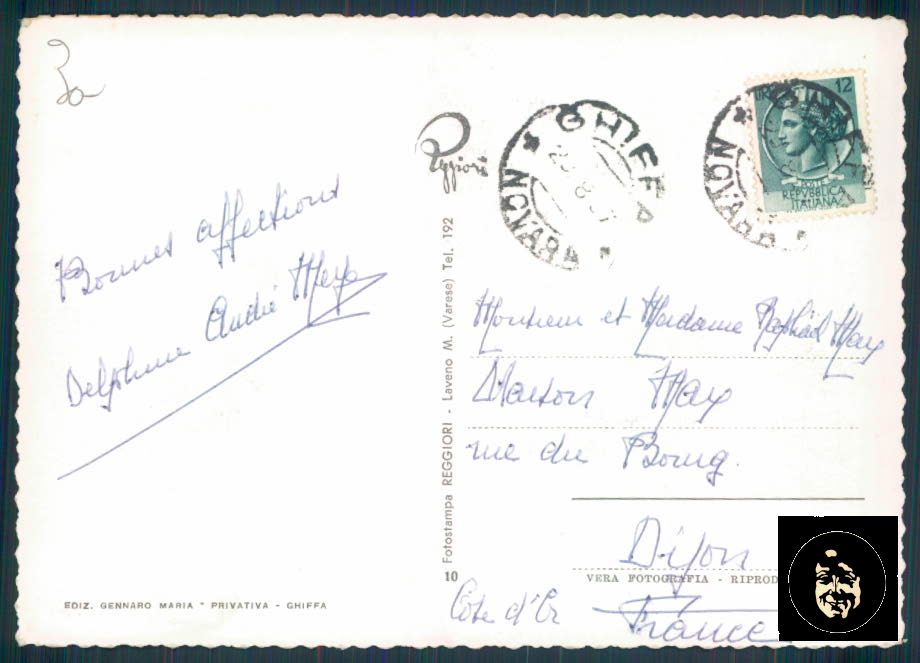 30
Bonnes affections
Delphine André May
EDIZ. GENNARO MARIA - PRIVATIVA - GHIFFA
Reggiori
Fotostampa REGGIORI - Laveno M. (Varese) Tel. 192
10
GHIFFA
NOVARA
LIRE 12
POSTE
REPVBBLICA
ITALIANA
GHIFFA
NOVARA
Monsieur et Madame Raphaël May
Maison May
rue du Bourg.
Dijon
VERA FOTOGRAFIA - RIPROD
Côte d'Or
France